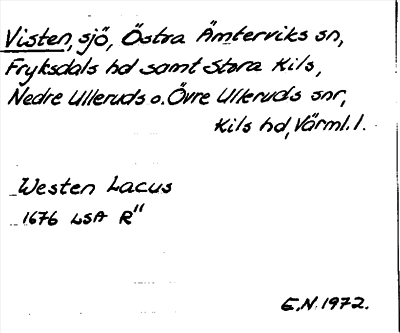 Visten, sjö, Östra Ämterviks sn,
Fryksdals hd samt Stora Kils,
Nedre Ulleruds o. Övre Ulleruds snr,
Kils hd, Värml. l.
Westen Lacus
1676 LSA R"
E.N. 1972.